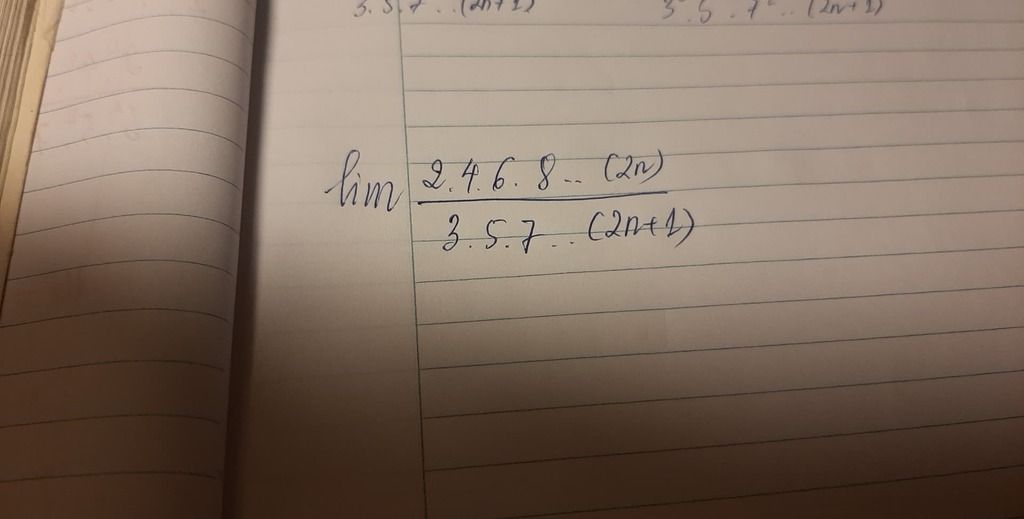 3.5.7..(2n+1) 3.5.7...(2n+1)
lim 2.4.6.8...(2n)
3.5.7...(2n+1)